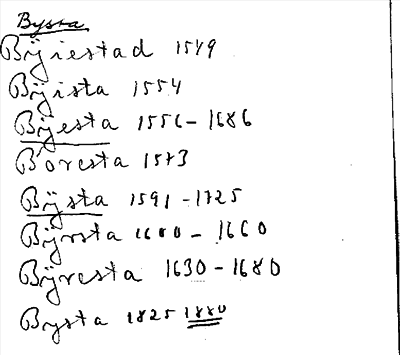 Bysta
Bÿiestad 1549
Bÿista 1554
Bÿesta 1556-1686
Boresta 1573
Bÿsta 1591-1725
Bÿrsta 1600-1660
Bÿresta 1630-1680
Bysta 1825 1880